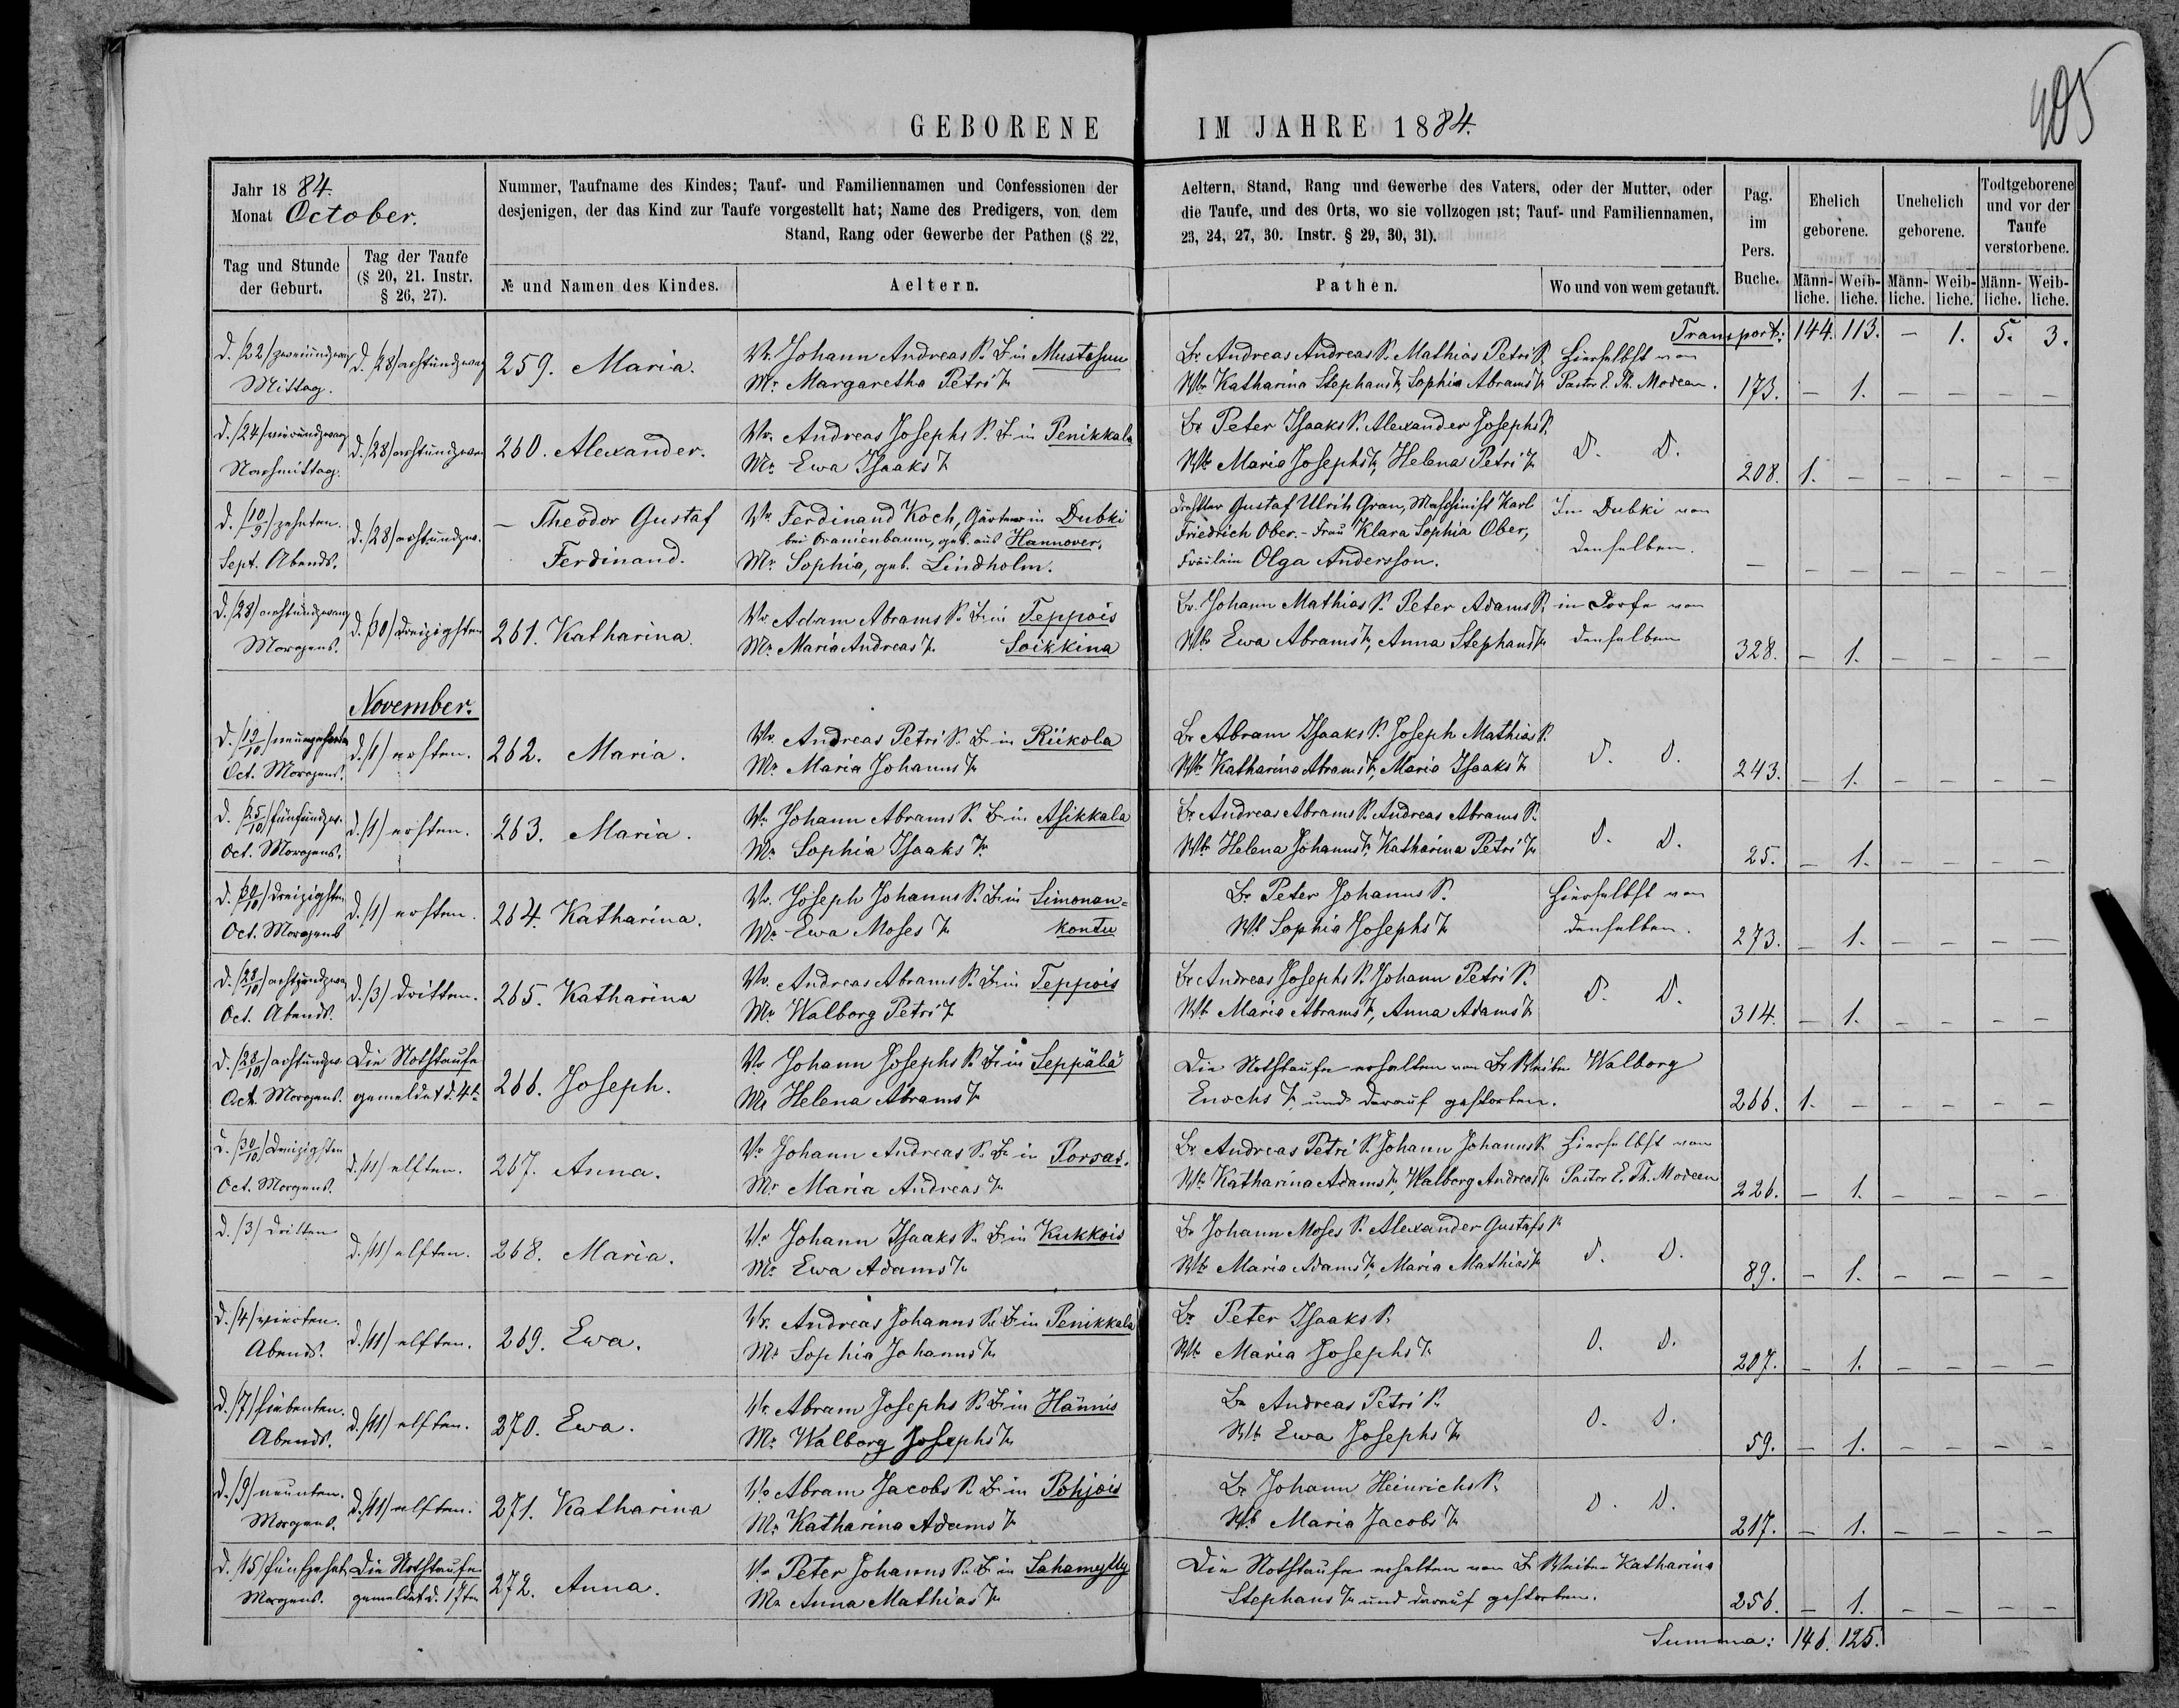 405
GEBORENE IM JAHRE 1884.
Jahr 1884.
Monat October.
Nummer, Taufname des Kindes; Tauf- und Familiennamen und Confessionen der
desjenigen, der das Kind zur Taufe vorgestellt hat; Name des Predigers, von dem
Stand, Rang oder Gewerbe der Pathen (§ 22,
Aeltern, Stand, Rang und Gewerbe des Vaters, oder der Mutter, oder
die Taufe, und des Orts, wo sie vollzogen ist; Tauf- und Familiennamen,
23, 24, 27, 30. Instr. § 29, 30, 31).
Tag und Stunde
der Geburt.
Tag der Taufe
(§ 20, 21. Instr.
§ 26, 27).
№ und Namen des Kindes.
Aeltern.
Pathen.
Wo und von wem getauft.
Pag.
im
Pers.
Buche.
Ehelich
geborene.
Unehelich
geborene.
Todtgeborene
und vor der
Taufe
verstorbene.
Männ-
liche.
Weib-
liche.
Männ-
liche.
Weib-
liche.
Männ-
liche.
Weib-
liche.
Transport: 144. 113. – 1. 5. 3.
d. (22) zweiundzwanz
Mittag.
d. (28) achtundzwanz
259. Maria.
Vr. Johann Andreas S. Br in Mustosuu
Mr. Margaretha Petri Tr
Br. Andreas Andreas S. Mathias Petri S.
Wbr Katharina Stephans Tr, Sophia Abrams Tr
Hierselbst von
Pastor E. Th. Modeen.
173. – 1. – – – –
d. (24) vierundzwanz
Nachmittag.
d. (28) achtundzwan
260. Alexander.
Vr. Andreas Josephs S. Br in Penikkala
Mr. Ewa Isaaks Tr
Br Peter Isaaks S. Alexander Josephs S.
Wbr Maria Josephs Tr, Helena Petri Tr
D. D.
208. 1. – – – – –
d. (10/9) zehnten.
Sept. Abends.
d. (28) achtundzw.
– Theodor Gustaf
Ferdinand.
Vr Ferdinand Koch, Gärtner in Dubki
bei Oranienbaum, geb. aus Hannover.
Mr Sophia, geb. Lindholm.
Gustaf Ulrich Gran, Maschinist Karl
Friedrich Ober. – Frau Klara Sophia Ober,
Fräulein Olga Andersson.
In Dubki von
denselben.
– – – – – – –
d. (28) achtundzwanz
Morgens.
d. (30) dreizigsten
261. Katharina.
Vr Adam Abrams S. Br in Teppois
Mr Maria Andreas Tr. Soikkina
Br. Johann Mathias S. Peter Adams S.
Wbr Ewa Abrams Tr, Anna Stephans Tr
in Dorfe von
denselben
328. – 1. – – – –
November.
d. (19/10) neunzehnten
Oct. Morgens.
d. (1) ersten.
262. Maria.
Vr. Andreas Petri S. Br in Riikola
Mr Maria Johanns Tr
Br Abram Isaaks S. Joseph Mathias S.
Wbr Katharina Abrams Tr, Maria Isaaks Tr
D. D.
243. – 1. – – – –
d. (25/10) fünfundzw.
Oct. Morgens.
d. (1) ersten.
263. Maria.
Vr. Johann Abrams S. Br in Asikkala
Mr. Sophia Isaaks Tr
Br Andreas Abrams S. Andreas Abrams S.
Wbr Helena Johanns Tr, Katharina Petri Tr
D. D.
25. – 1. – – – –
d. (30/10) dreizigsten
Oct. Morgens
d. (1) ersten.
264. Katharina.
Vr. Joseph Johanns S. Br in Simonan-
Mr Ewa Moses Tr kontu
Br Peter Johanns S.
Wb Sophia Josephs Tr
Hierselbst von
denselben.
273. – 1. – – – –
d. (28/10) achtundzwa
Oct. Abends.
d. (3) dritten.
265. Katharina
Vr. Andreas Abrams S. Br in Teppois
Mr Walborg Petri Tr
Br Andreas Josephs S. Johann Petri S.
Wb Maria Abrams Tr, Anna Adams Tr
D. D.
314. – 1. – – – –
d. (28/10) achtundzw.
Oct. Morgens.
Die Nothtaufe
gemeldet d. 4t.
266. Joseph.
Vr Johann Josephs S. Br in Seppälä
Mr Helena Abrams Tr
Die Nothtaufe erhalten von Br Weibe Walborg
Enochs Tr, und darauf gestorben.
266. 1. – – – – –
d. (30/10) dreizigsten
Oct. Morgens.
d. (11) elften.
267. Anna.
Vr Johann Andreas S. Br in Porsas.
Mr Maria Andreas Tr
Br. Andreas Petri S. Johann Johanns S.
Wbr Katharina Adams Tr, Walborg Andreas Tr
Hierselbst von
Pastor E. Th. Modeen
226. – 1. – – – –
d. (3) dritten
d. (11) elften.
268. Maria.
Vr Johann Isaaks S. Br in Kukkois
Mr Ewa Adams Tr
Br Johann Moses S. Alexander Gustafs S.
Wbr Maria Adams Tr, Maria Mathias Tr
D. D.
89. – 1. – – – –
d. (4) vierten.
Abends.
d. (11) elften.
269. Ewa.
Vr. Andreas Johanns S. Br in Penikkala
Mr Sophia Johanns Tr
Br Peter Isaaks S.
Wb Maria Josephs Tr
D. D.
207. – 1. – – – –
d. (7) siebenten.
Abends.
d. (11) elften.
270. Ewa.
Vr. Abram Josephs S. Br in Hännis
Mr Walborg Josephs Tr
Br Andreas Petri S.
Wb Ewa Josephs Tr
D. D.
59. – 1. – – – –
d. (9) neunten.
Morgens.
d. (11) elften.
271. Katharina
Vr Abram Jacobs S. Br in Pohjois
Mr Katharina Adams Tr
Br Johann Heinrichs S.
Wb Maria Jacobs Tr
D. D.
217. – 1. – – – –
d. (15) fünfzehnt.
Morgens.
Die Nothtaufe
gemeldet d. 17ten
272. Anna.
Vr Peter Johanns S. Br in Sahamylly
Mr Anna Mathias Tr
Die Nothtaufe erhalten von Br Weibe Katharina
Stephans Tr und darauf gestorben.
256. – 1. – – – –
Summa: 146. 125.